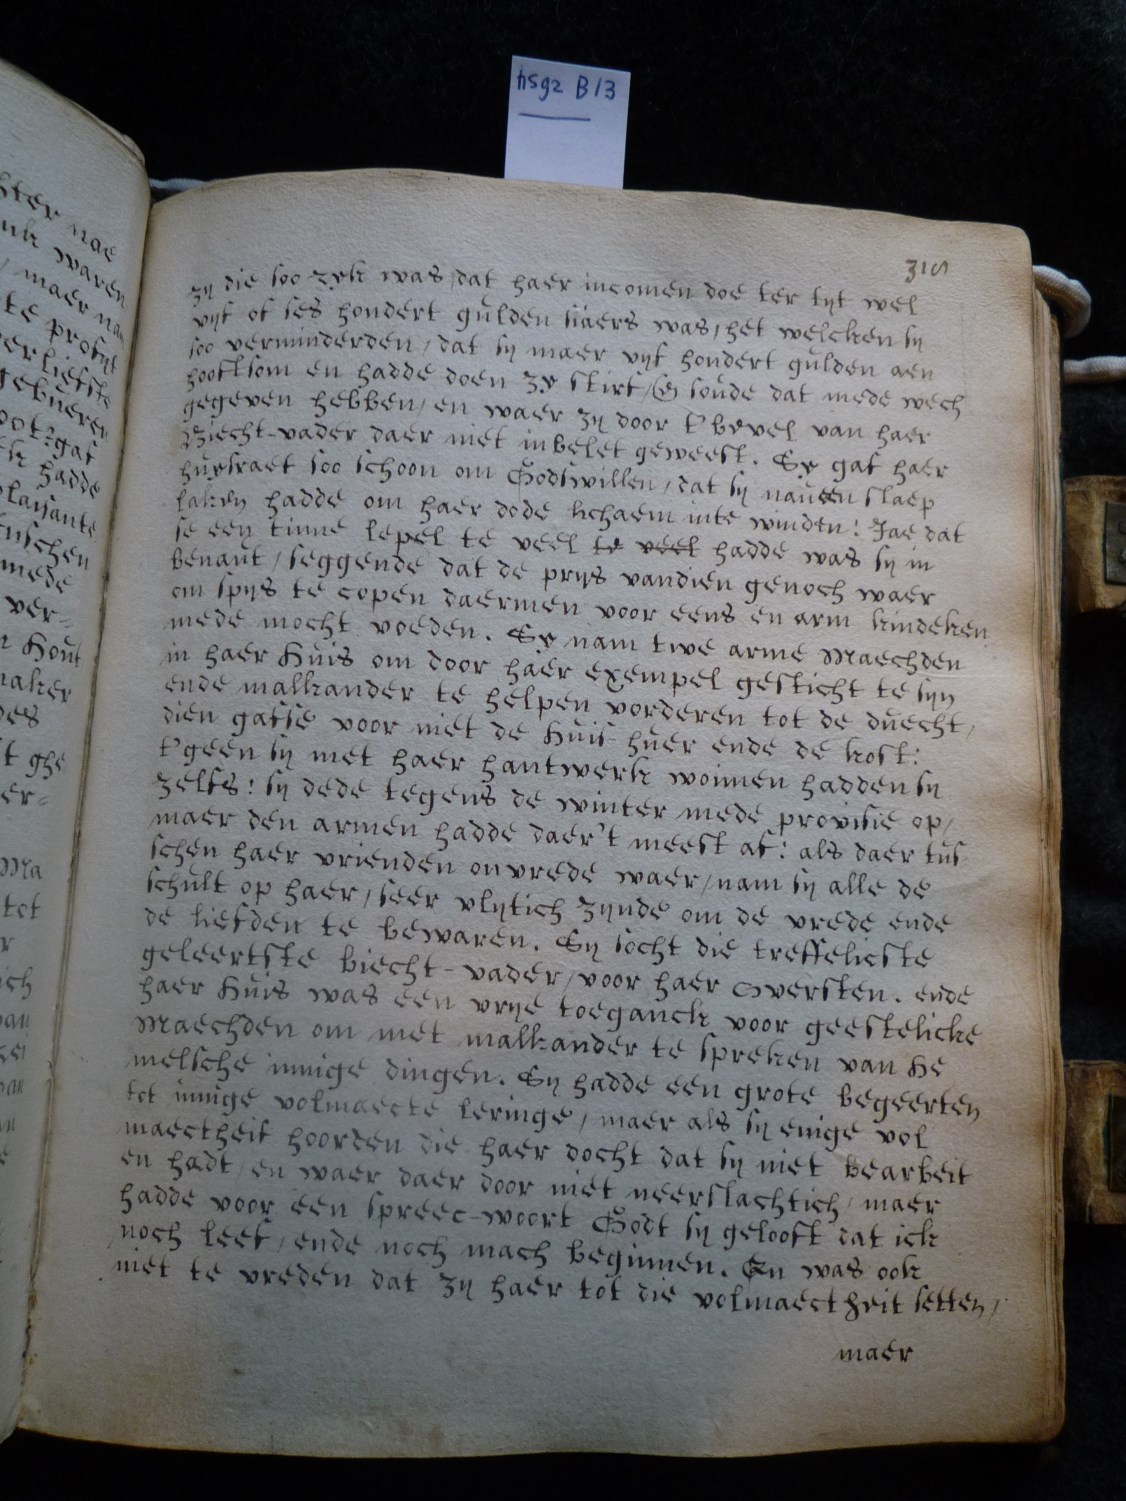 hsgz B13
315
zij die soo ryk was, dat haer incomen doe ter tijt wel
vijf of ses hondert gulden siaers was, het welcken sij
soo verminderden, dat sij maer vijf hondert gulden aen
hooftsom en hadde doen zy stirf, Sy soude dat mede wech
gegeven hebben, en waer zij door t'bevel van haer
Biecht-vader daer niet inbelet geweest. Sy gaf haer
huysraet soo schoon om Godswillen, dat sij naueen slaep
laken hadde om haer dode lichaem inte winden: Jae dat
se een tinne lepel te veel te veel hadde was sij in
benaut, seggende dat de prijs vandien genoch waer
om spijs te copen daermen voor eens en arm kindeken
mede mocht voeden. Sy nam twe arme Maechden
in haer Huis om door haer exempel gesticht te sijn
ende malkander te helpen vorderen tot de duecht,
dien gafse voor niet de Huis-huer ende de kost:
t'geen sij met haer hantwerk wonnen hadden sij
zelfs: sij dede tegens de winter mede provisie op,
maer den armen hadde daer't meest af: als daer tus
schen haer vrienden onvrede waer, nam sij alle de
schult op haer, seer vlijtich zijnde om de vrede ende
de liefden te bewaren. Sij socht die treffelicste
geleertste biecht-vader, voor haer Oversten. ende
haer Huis was een vrije toeganck voor geestelicke
Maechden om met malkander te spreken van he
melsche innige dingen. Sij hadde een grote begeerten
tot innige volmaecte leringe, maer als sij enige vol
maectheit hoorden die haer docht dat sij niet bearbeit
en hadt, en waer daer door niet neerslachtich, maer
hadde voor een spreec-woort Godt sij gelooft dat ick
noch leef, ende noch mach beginnen. En was ook
niet te vreden dat zij haer tot die volmaectheit setten,
maer